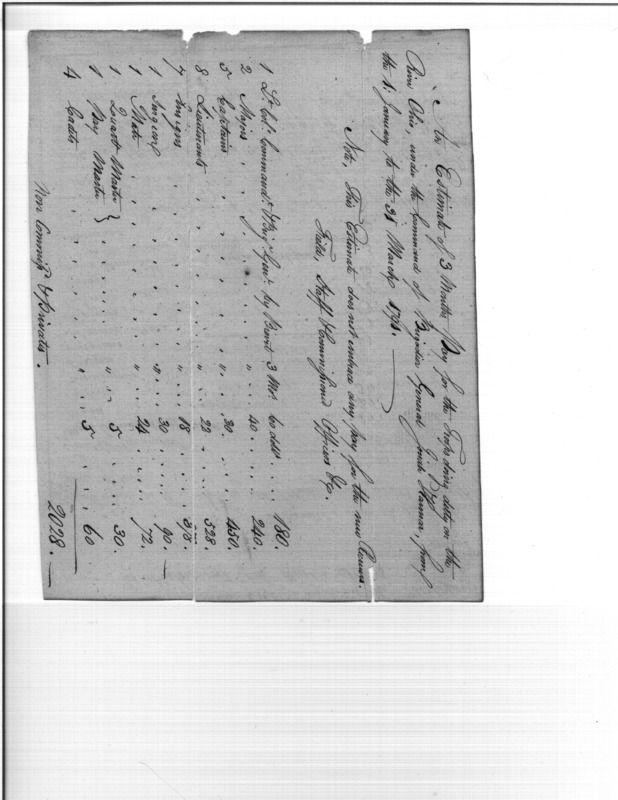 An Estimate of 3 Months Pay for the Troops doing duty on the
River Ohio, under the Command of Brigadier General Josiah Harmar, from
the 1st. January to the 31 March 1791.
Note, This Estimate does not embrace any pay for the new
Field, Staff & Commissioned Officers &c.
1 Lt. Col. Command.t Brig.r Gen.l by Brevt 3 Mos. 60 dolls .... 180.
2 Majors .... " .. 40 .... 240.
5 Captains .... " .. 30 .... 450.
8 Lieutenants .... " .. 22 .... 528.
7 Ensigns .... " .. 18 .... 378.
1 Surgeon .... " .. 30 .... 90.
1 Mate .... " .. 24 .... 72.
1 Quarter Master }
1 Pay Master } .... " .. 5 .... 30.
4 Cadets .... " .. 5 .... 60
2028.
Non Commiss.d & Privates.